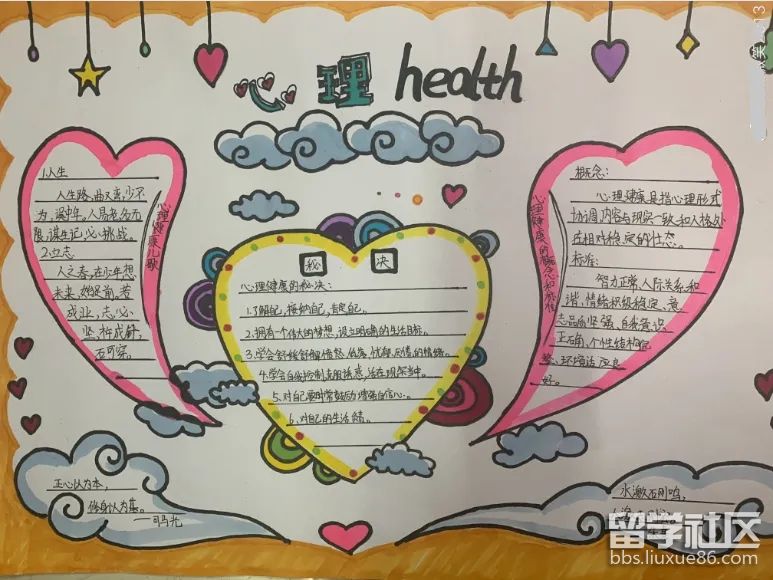 心 理 health
1.人生
人生路,曲又弯,少不
为,误中年,人易老,名无
限,谨牢记,必挑战。
2.立志
人之春,在少年,想
未来,始足前,若
成业,志,必
坚,
心理健康儿歌
秘 决
心理健康的秘决:
1.了解自己,接纳自己,肯定自己。
2.拥有一个伟大的梦想,设立明确的生活目标。
3.学会舒缓纾解愤怒、伤痛、忧郁、反情的情绪。
4.学会自我控制克服诱惑,活在现实当中。
5、对自己要时常鼓励,增强自信心。
6.对自己的生活
概念:
心理健康是指心理形式
协调、内容与现实一致和人格处
在相对稳定的状态。
标准:
智力正常、人际关系和
谐,情绪积极稳定、意
志品质坚强、自我意识
正确、个性结构完
整、环境适应良
好。
心理健康的概念和标准
正心以为本,
修身以为基。
——司马光
水激石则鸣,
留学社区
bbs.liuxue86.com
13